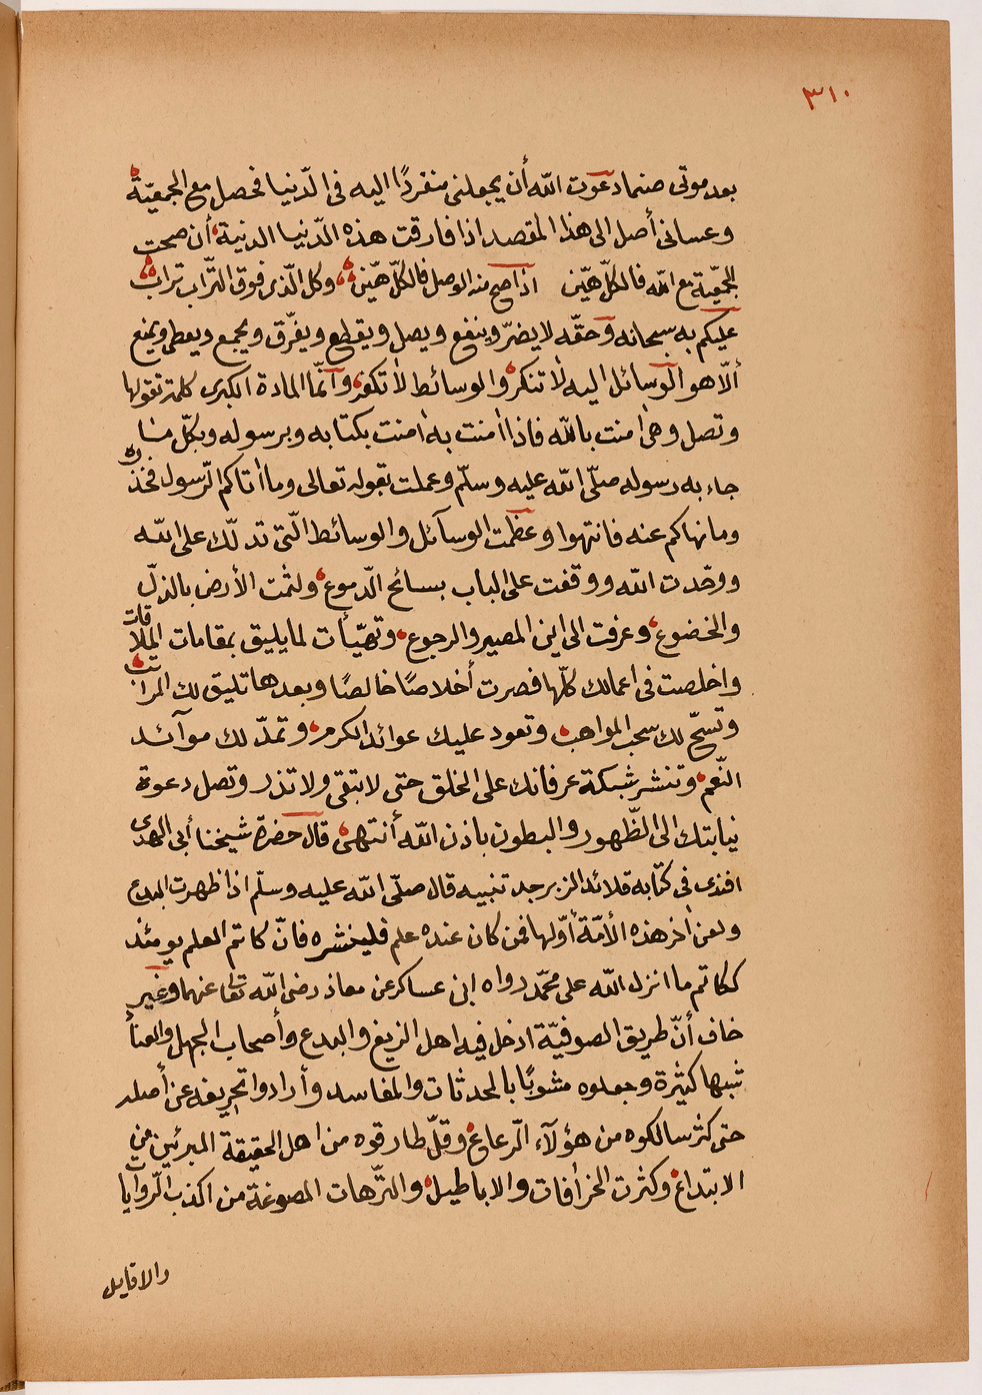 ٣١٠
بعد موتى صنما دعوت الله أن يجعلنى منفردًا اليه فى الدّنيا فحصل مع الجمعيّة
وعسانى أصل الى هذا المقصد اذا فارقت هذه الدّنيا الدنية أن صحت
الجمعيّة مع الله فالكلّ هيّن اذا صح منه الوصل فالكلّ هيّن وكل الّذى فوق التّراب تراب
عليكم به سبحانه وحقّه لا يضرّ وينفع ويصل ويقطع ويفرّق ويجمع ويعطى ويمنع
ألّا هو الوسائل اليه لا تنكر والوسائط لا تكفر وأنّما المادة الكبرى كلمة تقولها
وتصل وهى أمنت بالله فاذا أمنت به أمنت بكتابه وبرسوله وبكلّ مـٰا
جاء به رسوله صلّى الله عليه وسلّم وعملت بقوله تعالى وما اٰتاكم الرّسول فخذوه
وما نهاكم عنه فانتهوا وعظمت الوسآئل والوسائط الّتى تدلّك على الله
ووحّدت الله ووقفت على الباب بسائح الدّموع ولثمت الأرض بالذلّ
والخضوع وعرفت الى اين المصير والرجوع وتهيّأت لما يليق بمقامات الملاقات
واخلصت فى اعمالك كلّها فصرت أخلاصًا خالصًا وبعدها تليق لك المراتب
وتسحّ لك سحب المواهب وتعود عليك عوائد الكرم وتمدّ لك موآئد
النّعم وتنشر شبكة عرفانك على الخلق حتى لا تبقى ولا تذر وتصل دعوة
نيابتك الى الظّهور والبطون باذن الله أنتهى قال حضرة شيخنا أبى الهدى
افندى فى كتابه قلائد الزبرجد تنبيه قال صلّى الله عليه وسلّم اذا ظهرت البدع
ولعن اٰخر هذه الأمّة أوّلها فمن كان عنده علم فلينشره فانّ كاتم العلم يومئذ
ككاتم ما انزل الله على محمّد رواه ابن عساكر عن معاذ رضى الله تعالى عنهما وغير
خاف أنّ طريق الصوفيّة ادخل فيه اهل الزيغ والبدع وأصحاب الجهل والعنأ
شبها كثيرة وجعلوه مشوبًا بالمحدثات والمفاسد وأرادوا تحريفه عن أصله
حتى كثر سالكوه من هؤلآء الرّعاع وقلّ طارقوه من اهل الحقيقة المبرئين من
الابتداع وكثرت الخرافات والاباطيل والتّرهات المصوغة من اكذب الرّوايات
والاقايل